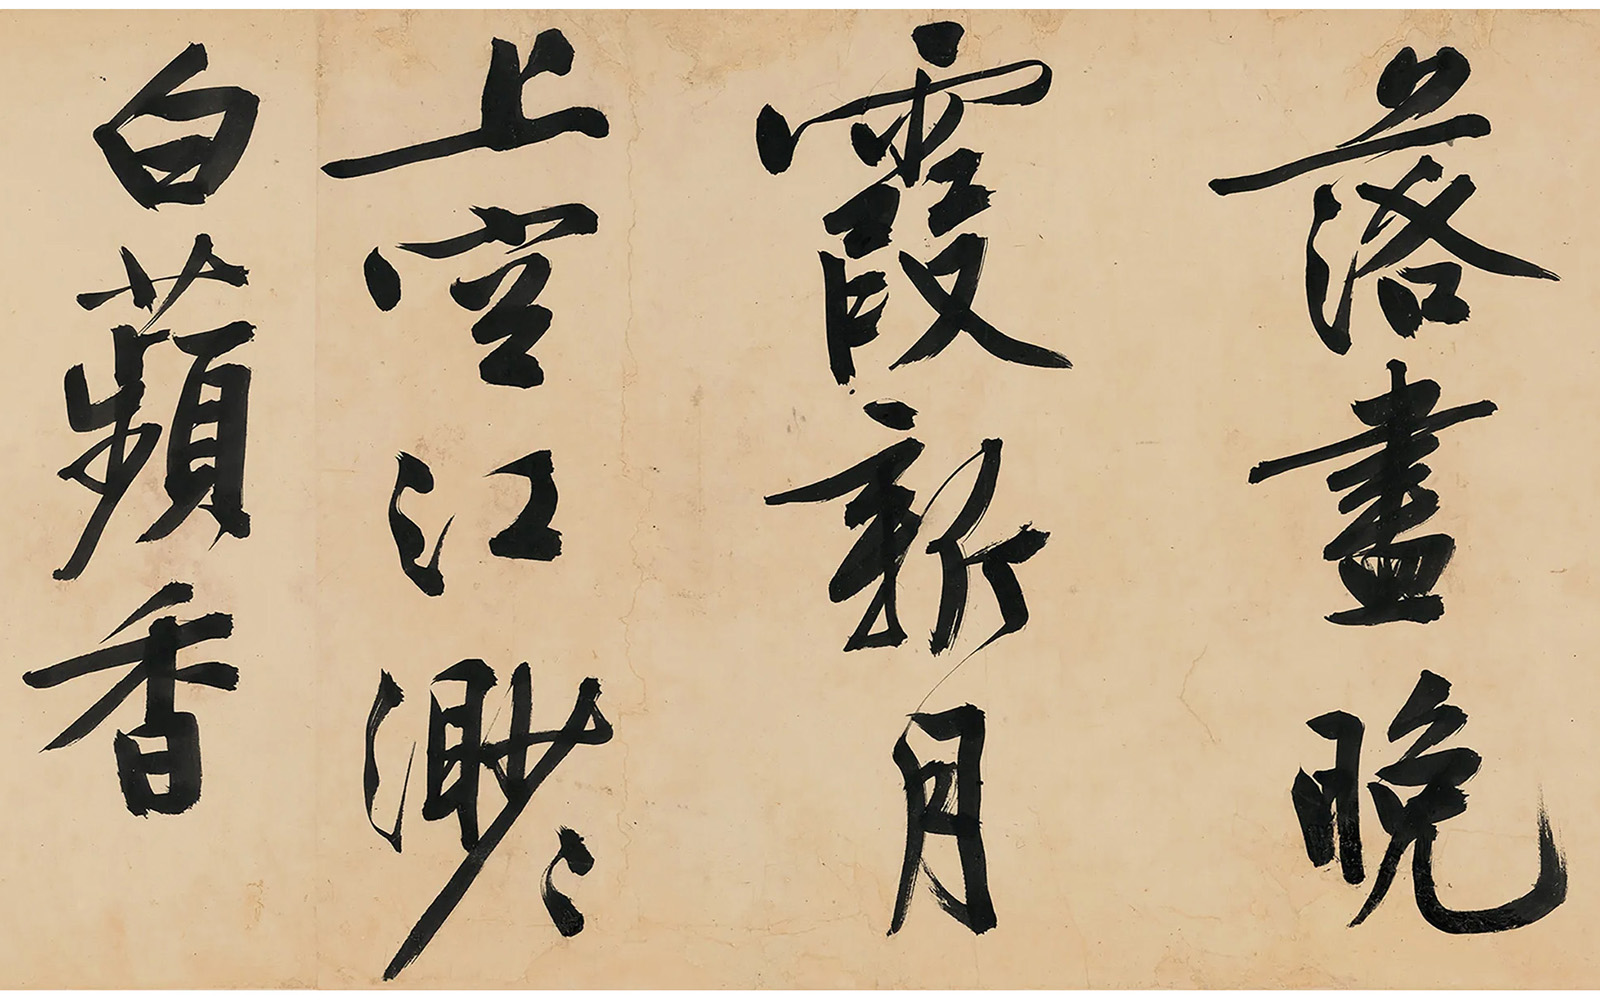 落盡晚
霞新月
上空江渺〻
白蘋香